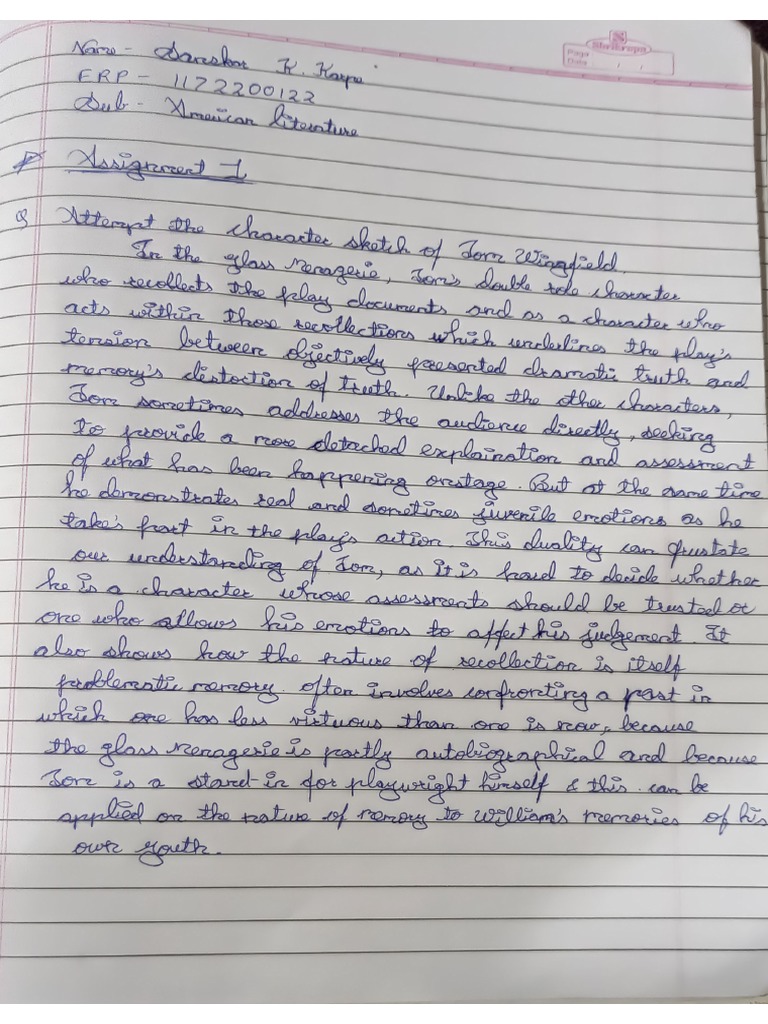 Shri krupa
Page
Date / /
Name - Sanskar K. Karpe
ERP - 1172200122
Sub - American literature
Assignment 1
Q Attempt the character sketch of Tom Wingfield.
In the glass menagerie, Tom's double role character
who recollects the play documents and as a character who
acts within those recollections which underlines the play's
tension between objectively presented dramatic truth and
memory's distoction of truth. Unlike the other characters,
Tom sometimes addresses the audience directly, seeking
to provide a more detached explaination and assessment
of what has been happening onstage. But at the same time
he demonstrates real and sometimes juvenile emotions as he
take's part in the play's action. This duality can frustate
our understanding of Tom, as it is hard to decide whether
he is a character whose assessments should be trusted or
one who allows his emotions to affect his judgement. It
also shows how the nature of recollection is itself
problematic memory. often involves confronting a past in
which one has less virtuous than one is now, because
the glass menagerie is partly autobiographical and because
Tom is a stand-in for playwright himself & this can be
applied on the nature of memory to William's memories of his
own youth.